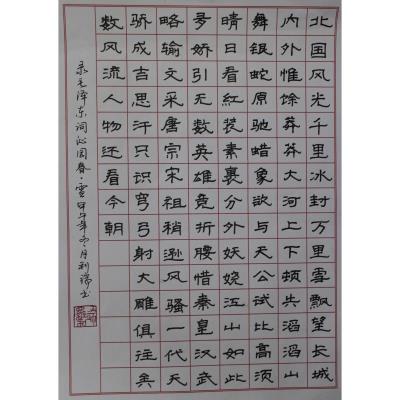 北国风光千里冰封万里雪飘望长城
内外惟馀莽莽大河上下顿失滔滔山
舞银蛇原驰蜡象欲与天公试比高须
晴日看紅装素裹分外妖娆江山如此
多娇引无数英雄竞折腰惜秦皇汉武
略输文采唐宗宋祖稍逊风骚一代天
骄成吉思汗只识弯弓射大雕俱往矣
数风流人物还看今朝
录毛泽东词沁园春·雪甲午年冬月利瑞书